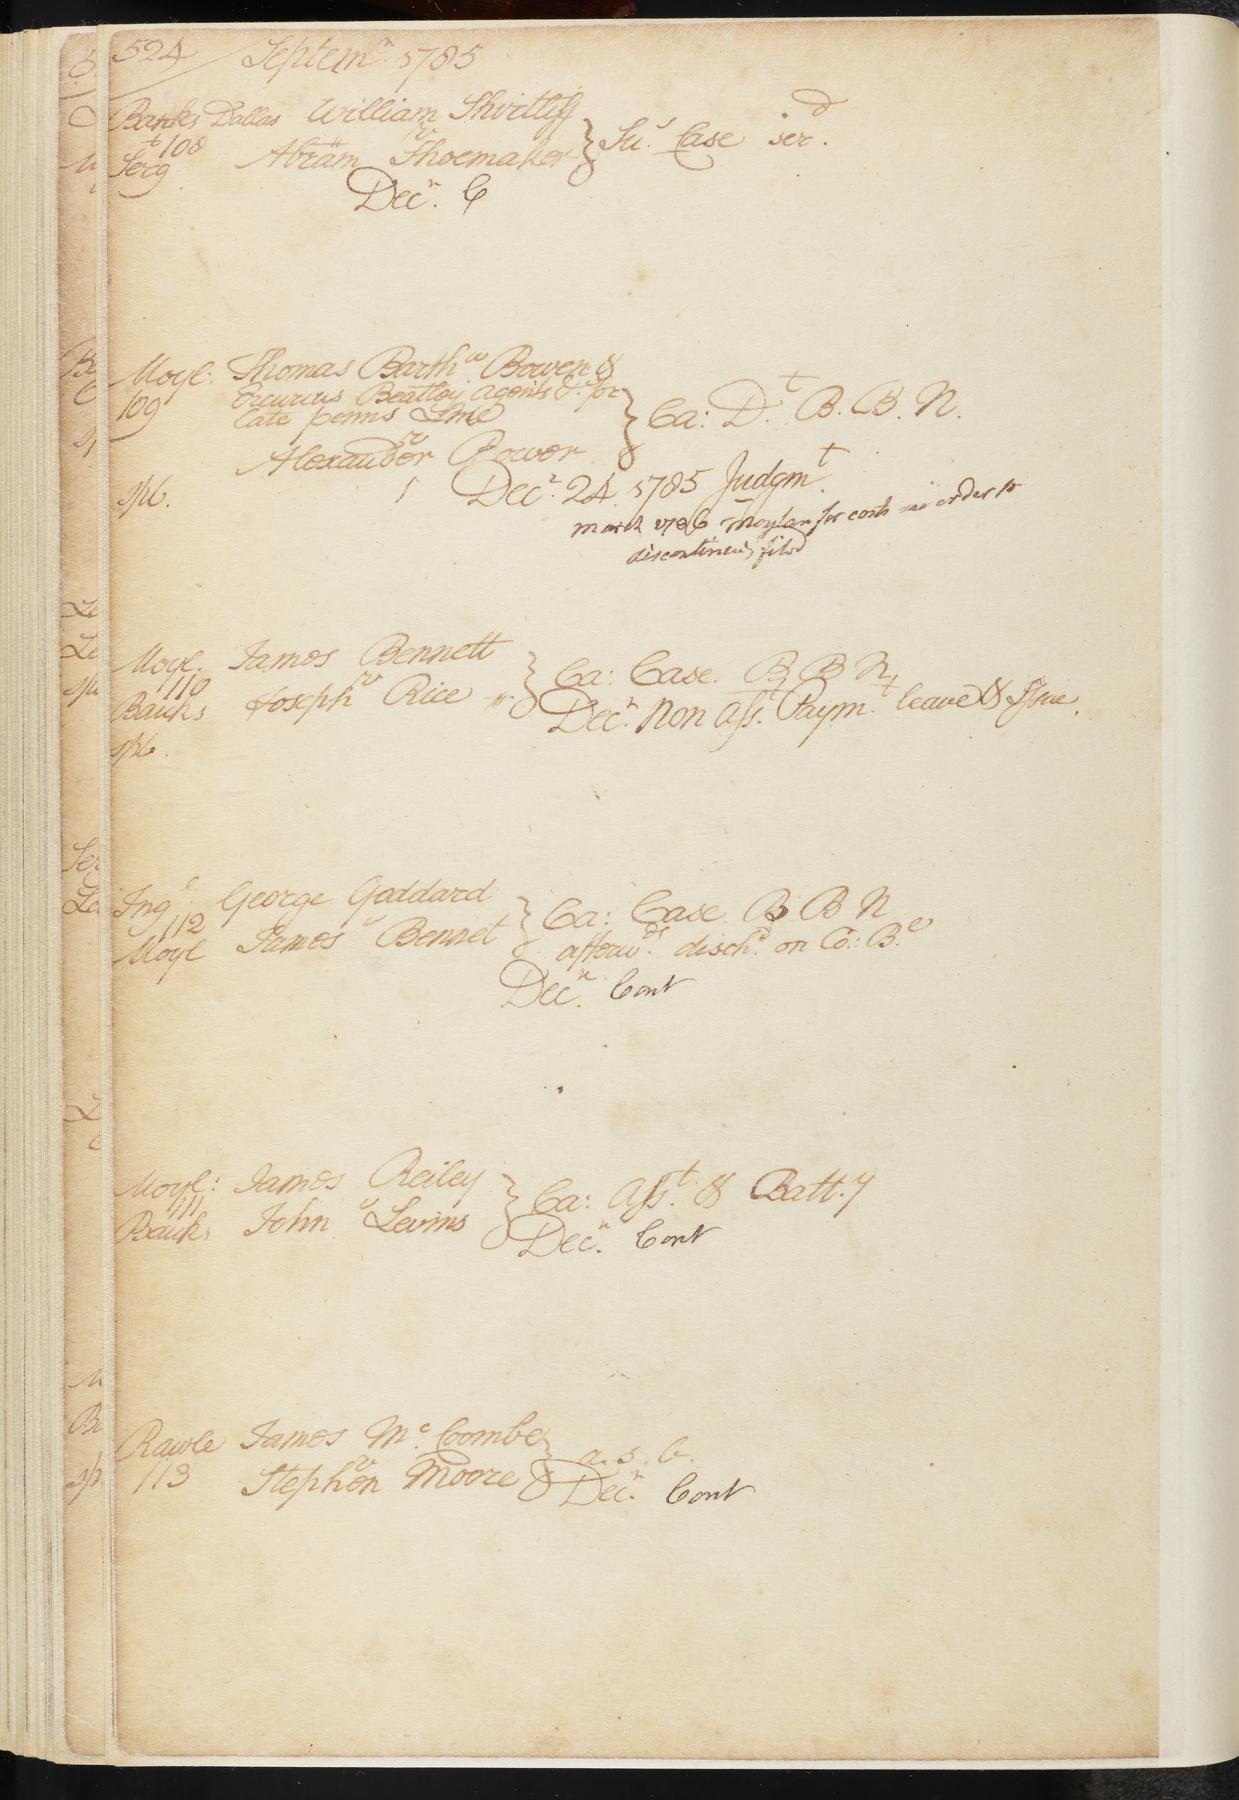 524 Septem.r 1785
Banks Dallas William Shirtliff
108 v } Su.s Case ser.d
Serg.t Abram Shoemaker
Dec.r C
Moyl: Thomas Barth.w Bowen &
109 Beatley agents &c. for
late penns Line } Ca: D.t B. B. N.
v
Alexander Power
spb. Dec.r 24 1785 Judgm.t
march 1786 Moylan for costs order to
discontinue filed
Moyl. James Bennett
110 v } Ca: Case. B B N
Banks Joseph Rice Dec.r Non Ass.t Paym.t leave & Issue.
spb.
Ing.l George Goddard
112 v } Ca: Case B B N
Moyl James Bennet afterw.ds disch.d on Co: B.
Dec.r Cont
Moyl: James Reiley
111 v } Ca: Ass.t & Batt.y
Banks John Levins Dec.r Cont
Rawle James M.c Coombe
113 v } a. s. b.
Stephen Moore Dec.r Cont